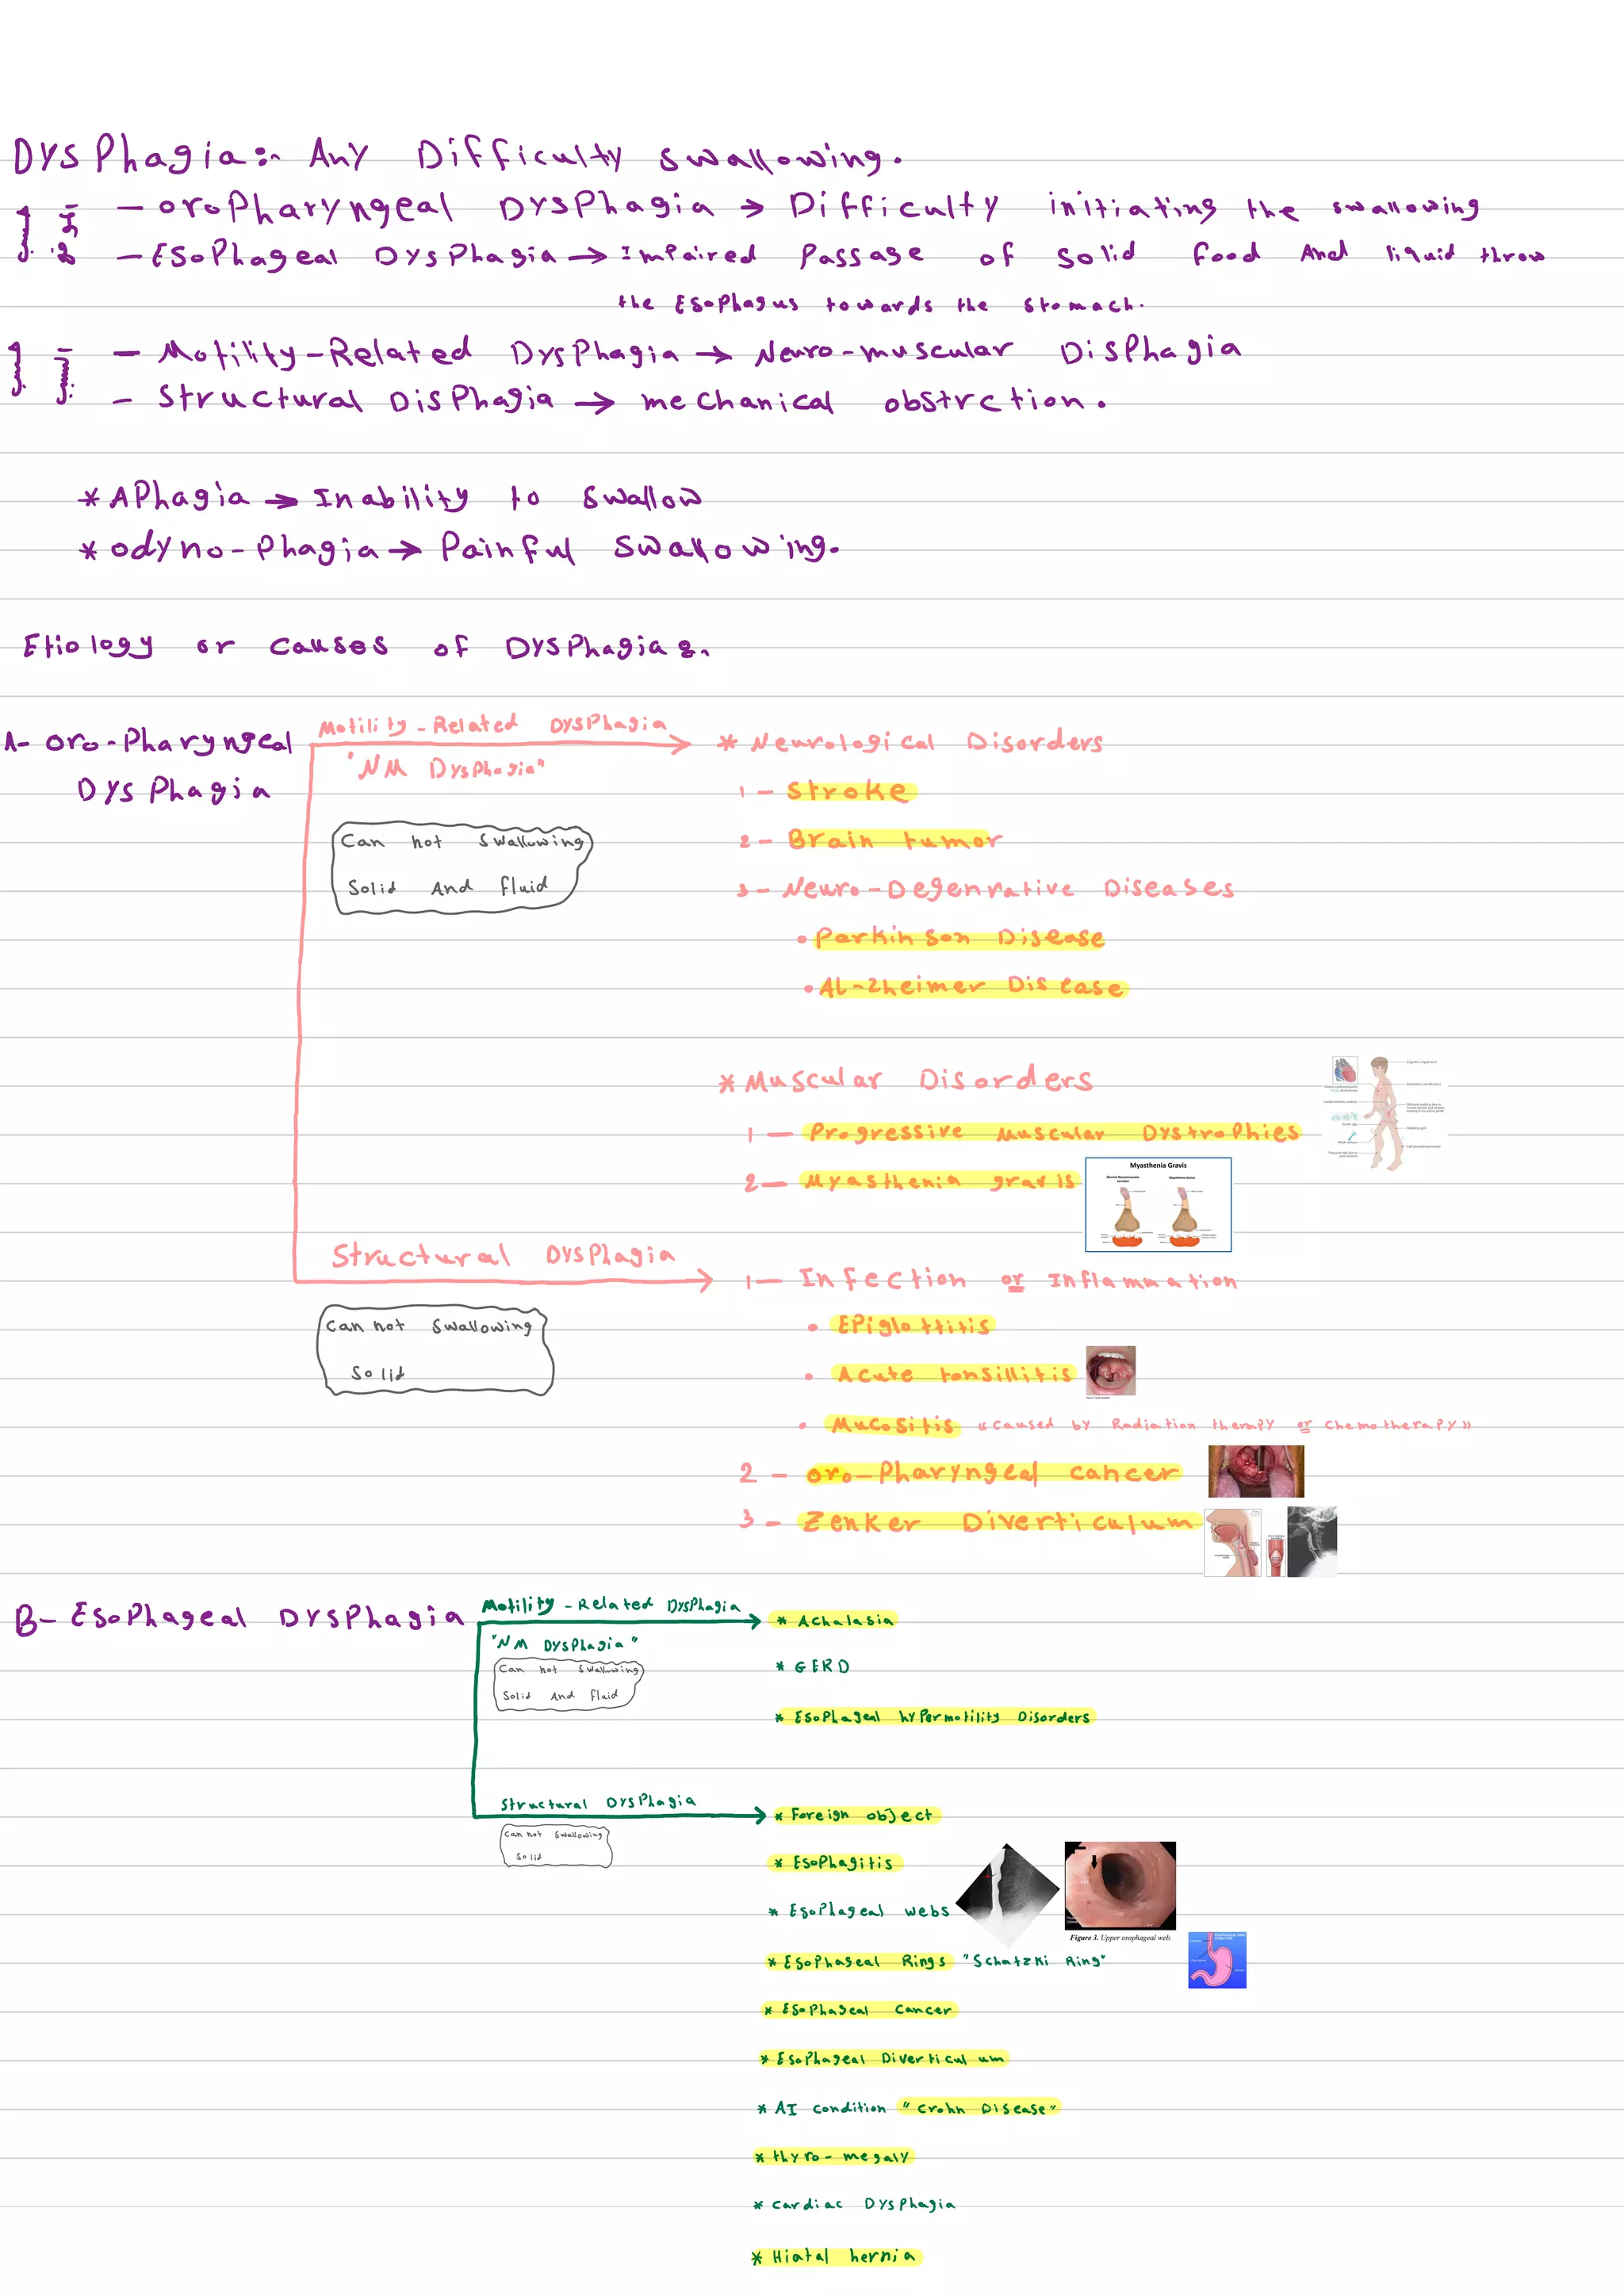 DysPhagia:- Any Difficulty swallowing.
- oroPharyngeal DysPhagia → Difficulty initiating the swallowing
- EsoPhageal DysPhagia → Impaired Passage of Solid food And liquid throw
the EsoPhagus towards the stomach.
- Motility-Related DysPhagia → Neuro-muscular DisPhagia
- Structural DisPhagia → mechanical obstrction.
* APhagia → Inability to Swallow
* odyno-Phagia → Painful Swallowing.
Etiology or causes of DysPhagia:-
A- oro-Pharyngeal
DysPhagia
Motility-Related DysPhagia
"NM DysPhagia"
Can not Swallowing
Solid And fluid
* Neurological Disorders
1- Stroke
2- Brain tumor
3- Neuro-Degenrative Diseases
• Parkinson Disease
• AL-Zheimer Disease
* Muscular Disorders
1- Progressive Muscular Dystrophies
2- Myasthenia gravis
Myasthenia Gravis
Structural DysPhagia
Can not Swallowing
Solid
1- Infection or Inflammation
• EPiglottitis
• Acute tonsillitis
• Mucositis "caused by Radiation therapy or Chemotherapy"
2- oro-Pharyngeal cancer
3- Zenker Diverticulum
B- EsoPhageal DysPhagia
Motility-Related DysPhagia
"NM DysPhagia"
Can not Swallowing
Solid And fluid
* Achalasia
* GERD
* EsoPhageal hyPermotility Disorders
Structural DysPhagia
Can not Swallowing
Solid
* Foreign object
* EsoPhagitis
* EsoPhageal webs
Figure 3. Upper esophageal web.
* EsoPhageal Rings "Schatzki Ring"
* EsoPhageal Cancer
* EsoPhageal Diverticulum
* AI condition "Crohn Disease"
* thyro-megaly
* cardiac DysPhagia
* Hiatal hernia